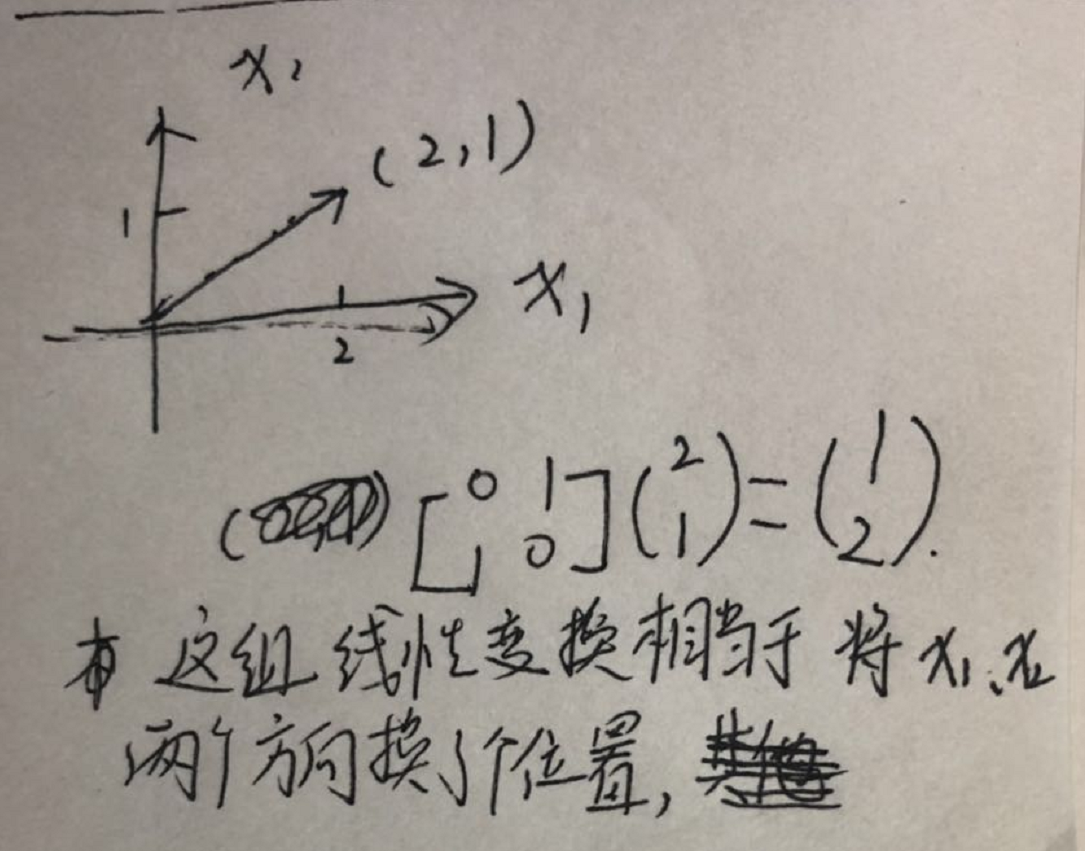 x₂
(2,1)
1
x₁
2
[0 1
1 0] (2
1) = (1
2).
这组线性变换相当于将x₁、x₂
两个方向换了个位置,